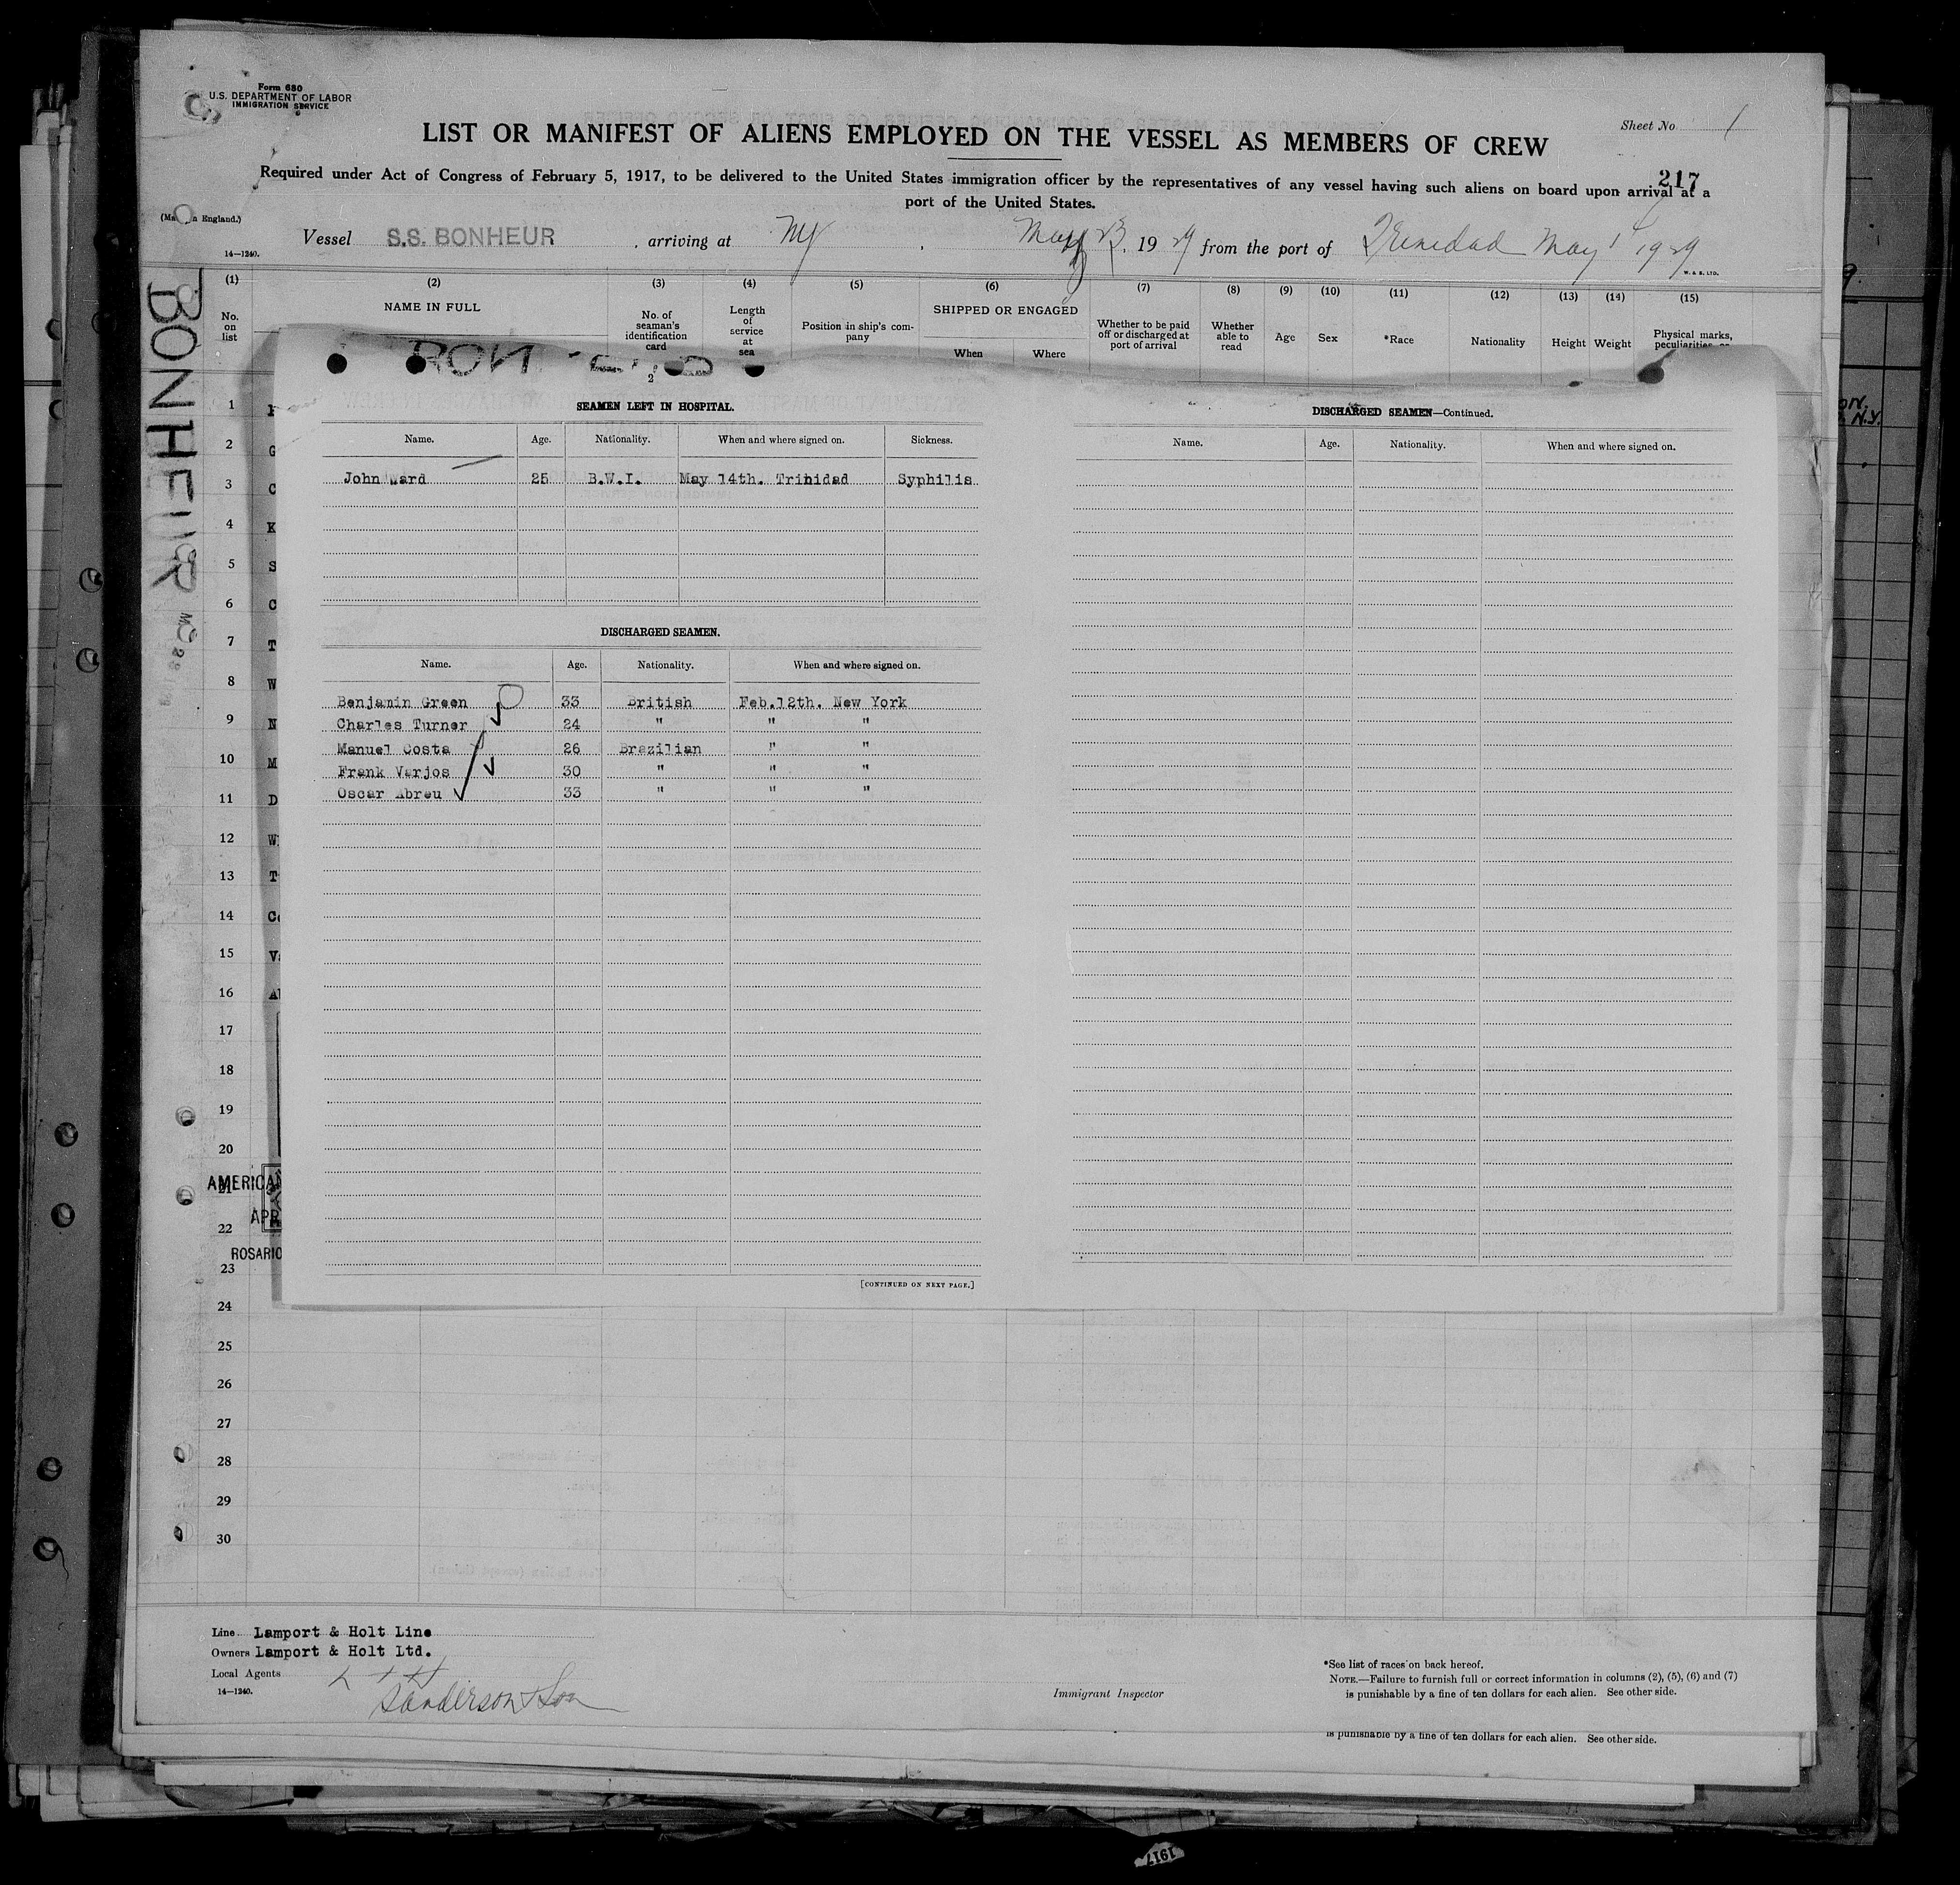 Form 680
U.S. DEPARTMENT OF LABOR
IMMIGRATION SERVICE
Sheet No 1
LIST OR MANIFEST OF ALIENS EMPLOYED ON THE VESSEL AS MEMBERS OF CREW
217
Required under Act of Congress of February 5, 1917, to be delivered to the United States immigration officer by the representatives of any vessel having such aliens on board upon arrival at a
port of the United States.
Vessel S.S. BONHEUR , arriving at NY , May 23, 1929 from the port of Trinidad May 14 1929
14—1240.
W. & S. LTD.
BONHEUR
(1) (2) (3) (4) (5) (6) (7) (8) (9) (10) (11) (12) (13) (14) (15)
No. on list
NAME IN FULL
No. of seaman's identification card
Length of service at sea
Position in ship's company
SHIPPED OR ENGAGED
When Where
Whether to be paid off or discharged at port of arrival
Whether able to read
Age
Sex
*Race
Nationality
Height
Weight
Physical marks,
2
SEAMEN LEFT IN HOSPITAL.
Name. Age. Nationality. When and where signed on. Sickness.
John Ward 25 B.W.I. May 14th. Trinidad Syphilis
DISCHARGED SEAMEN.
Name. Age. Nationality. When and where signed on.
Benjamin Green 33 British Feb.12th. New York
Charles Turner 24 " " "
Manuel Costa 26 Brazilian " "
Frank Varjos 30 " " "
Oscar Abreu 33 " " "
[CONTINUED ON NEXT PAGE.]
DISCHARGED SEAMEN—Continued.
Name. Age. Nationality. When and where signed on.
1
2
3
4
5
6
7
8
9
10
11
12
13
14
15
16
17
18
19
20
21
22
23
24
25
26
27
28
29
30
AMERICAN
APR
ROSARIO
Line Lamport & Holt Line
Owners Lamport & Holt Ltd.
Local Agents L & H
Sanderson & Son
14—1240.
Immigrant Inspector
*See list of races on back hereof.
NOTE.—Failure to furnish full or correct information in columns (2), (5), (6) and (7)
is punishable by a fine of ten dollars for each alien. See other side.
is punishable by a fine of ten dollars for each alien. See other side.
1917